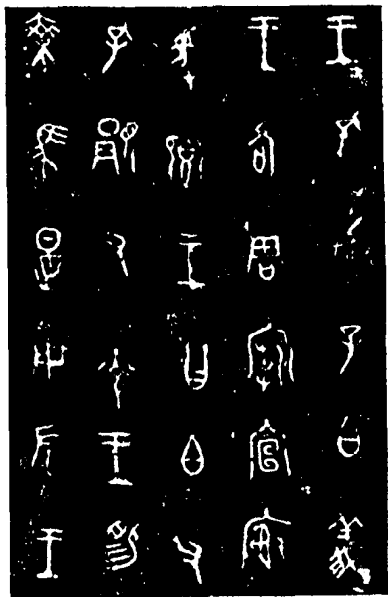 王孔加子白義
王各周廟宣廚
爰鄉王曰白父
孔顯又光王睗
乘馬是用左王